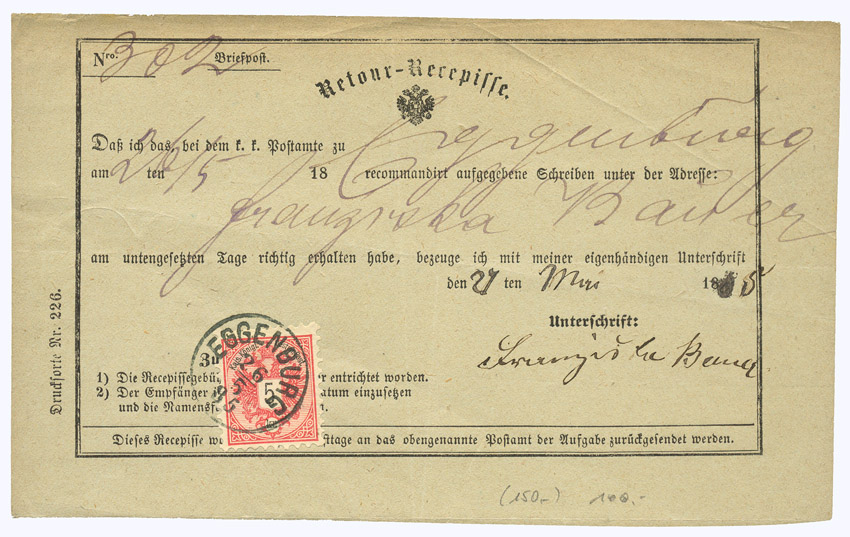 Nro. 302 Briefpost.
Retour-Recepisse.
Daß ich das, bei dem k. k. Postamte zu Eggenburg
am 26/5 ten 18 recommandirt aufgegebene Schreiben unter der Adresse:
Franziska Bauer
am untengesetzten Tage richtig erhalten habe, bezeuge ich mit meiner eigenhändigen Unterschrift
den 27 ten Mai 18 5
Unterschrift:
Franziska Baue
EGGENBURG
5
1) Die Recepissegebü er entrichtet worden.
2) Der Empfänger atum einzusetzen
und die Namensf
Dieses Recepisse w sttage an das obengenannte Postamt der Aufgabe zurückgesendet werden.
Drucksorte Nr. 226.
(150,-) 100.-